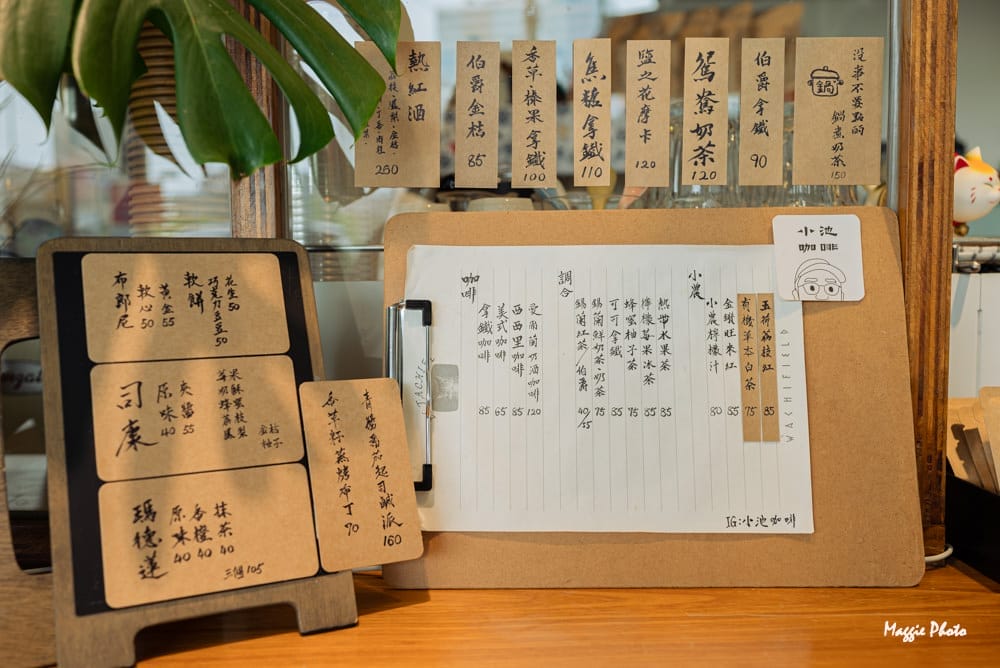 熱紅酒
250
伯爵金桔
85
香草·榛果拿鐵
100
焦糖拿鐵
110
鹽之花摩卡
120
鴛鴦奶茶
120
伯爵拿鐵
90
沒事不要點的
鍋煮奶茶
150
鍋
小池
咖啡
小農
玉荷荔枝紅
85
有機羊太白茶
75
金鑽旺來紅
85
小農檸檬汁
80
調合
熱帶水果茶
85
檸檬莓果冰茶
85
蜂蜜柚子茶
75
可可拿鐵
85
錫蘭鮮奶茶·奶茶
75
錫蘭紅茶/伯爵
40/55
咖啡
愛爾蘭奶酒咖啡
120
西西里咖啡
85
美式咖啡
65
拿鐵咖啡
85
IG:小池咖啡
WACHIFIELD
布郎尼
軟心 50
黃金 55
軟餅
巧克力豆豆 50
花生 50
司康
原味 40
灰鹽 55
金桔
柚子
瑪德蓮
原味 40
香橙 40
抹茶 40
三個105
青醬番茄起司鹹派
160
香草籽蒸烤布丁
90
Maggie Photo